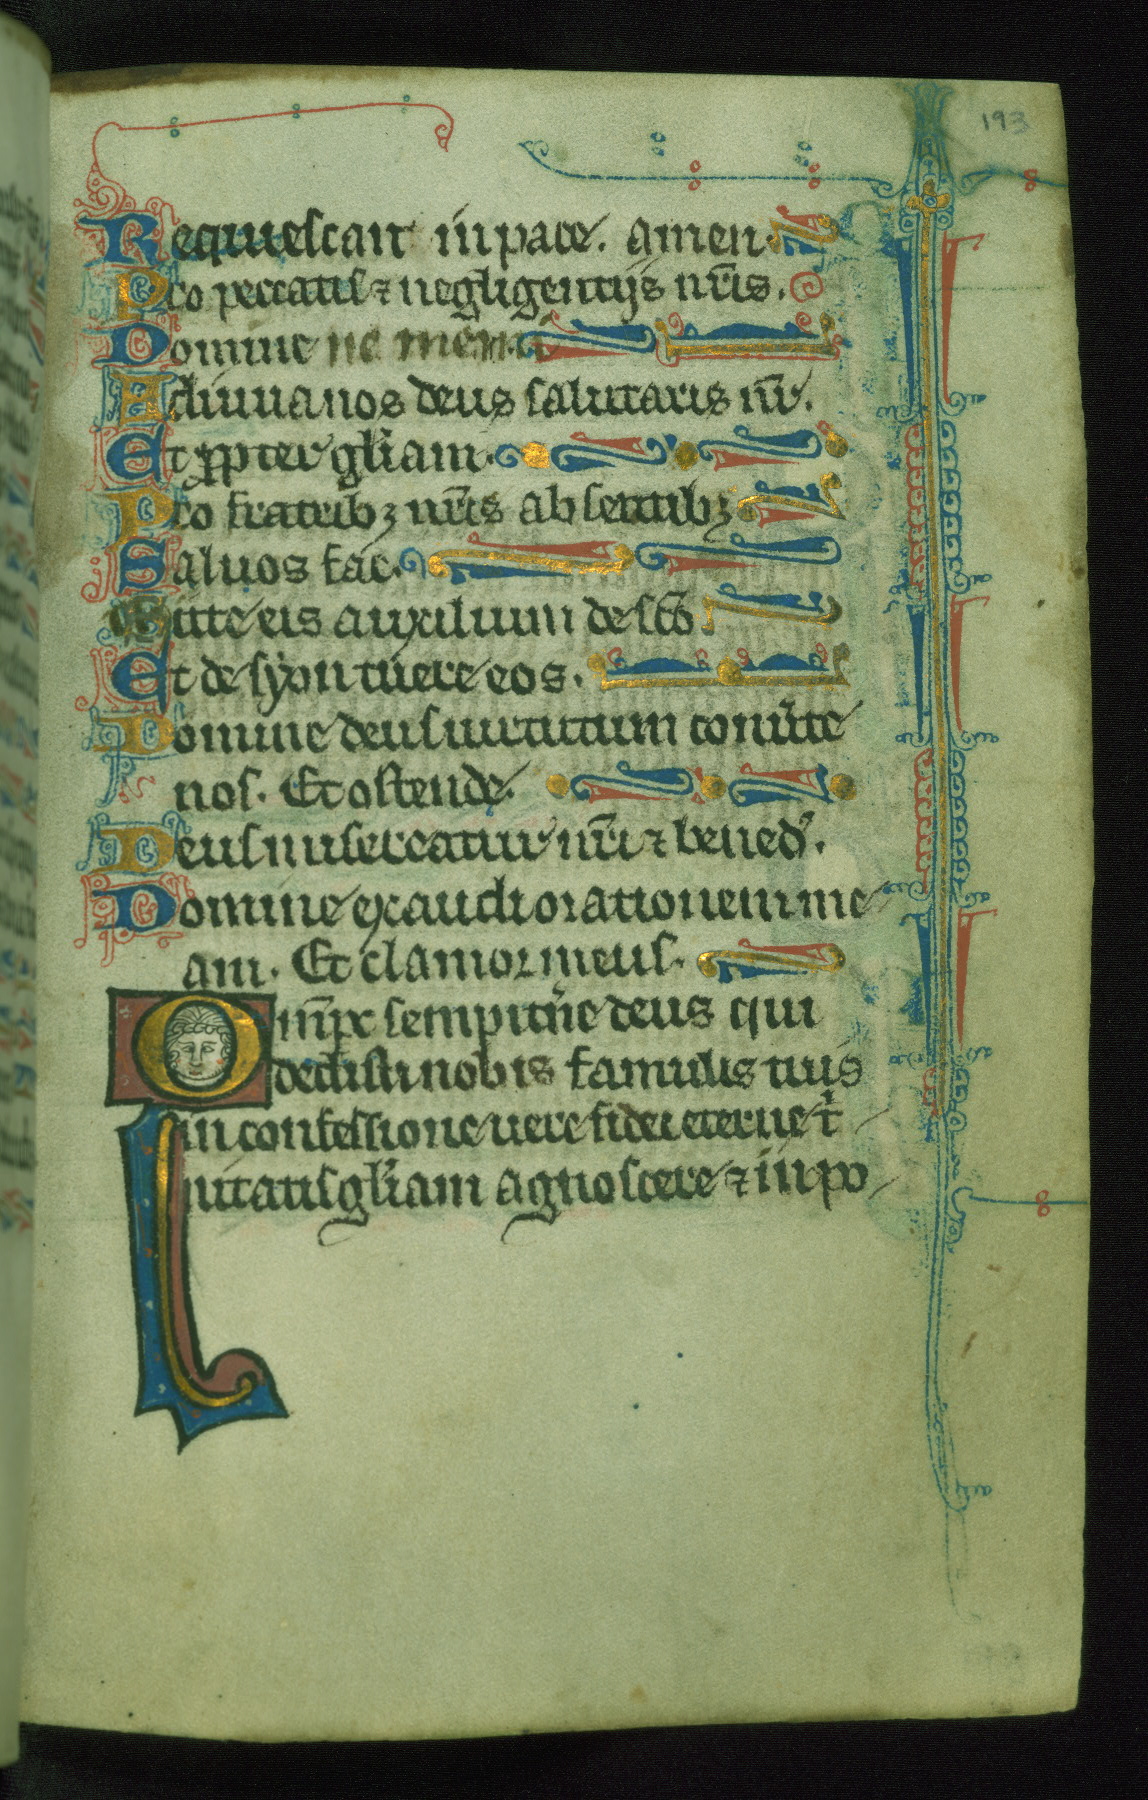 193
Requiescant in pace. amen.
Pro peccatis ⁊ negligentijs nr̄is.
Domine ne memi
Adiuua nos deus salutaris nr̄.
Et ꝓpter gl̄iam.
Pro fratribꝫ nr̄is absentibꝫ
Saluos fac.
Mitte eis auxilium de sc̄o
Et de syon tuere eos.
Domine deus uirtutum conu̾te
nos. Et ostende.
Deus misereatur nr̄i ⁊ bened̾.
Domine exaudi orationem me
am. Et clamor meus.
Omp̄s sempit̾ne deus qui
dedisti nobis famulis tuis
in confessione uere fidei eterne t̾
nitatis gl̄iam agnoscere ⁊ in po